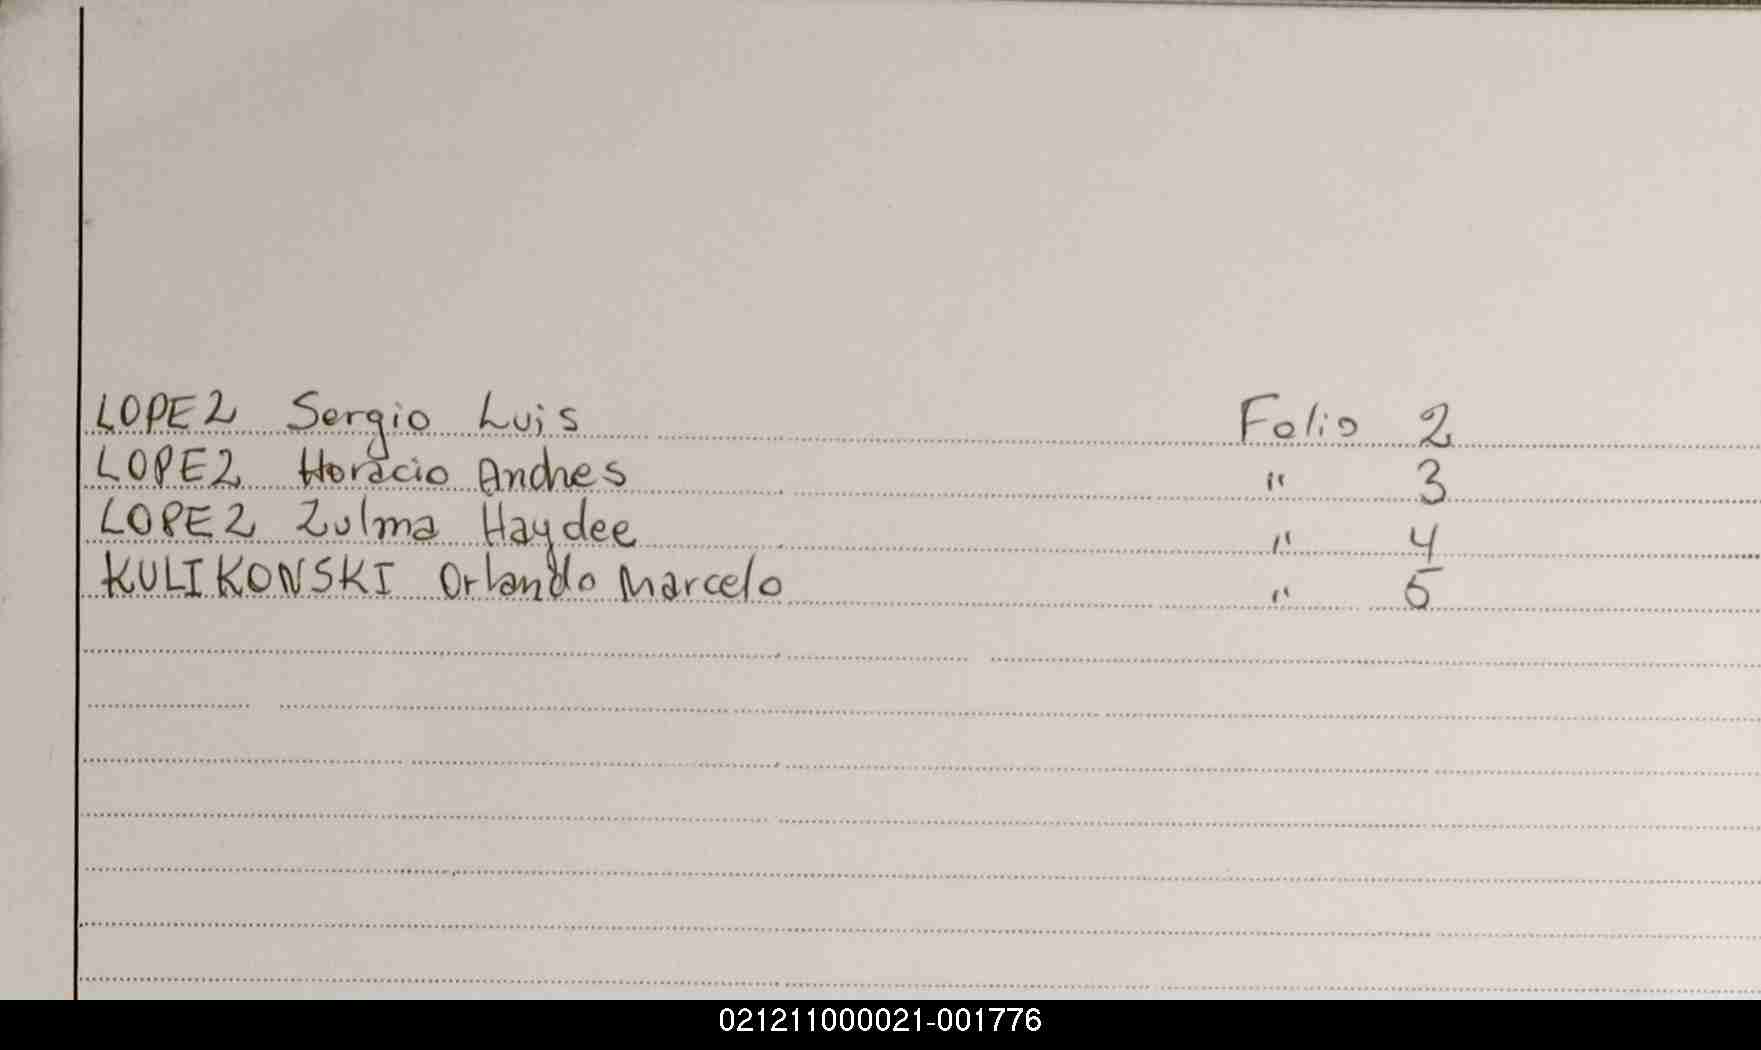 LOPEZ Sergio Luis Folio 2
LOPEZ Horacio Andres " 3
LOPEZ Zulma Haydee " 4
KULIKONSKI Orlando Marcelo " 5
021211000021-001776